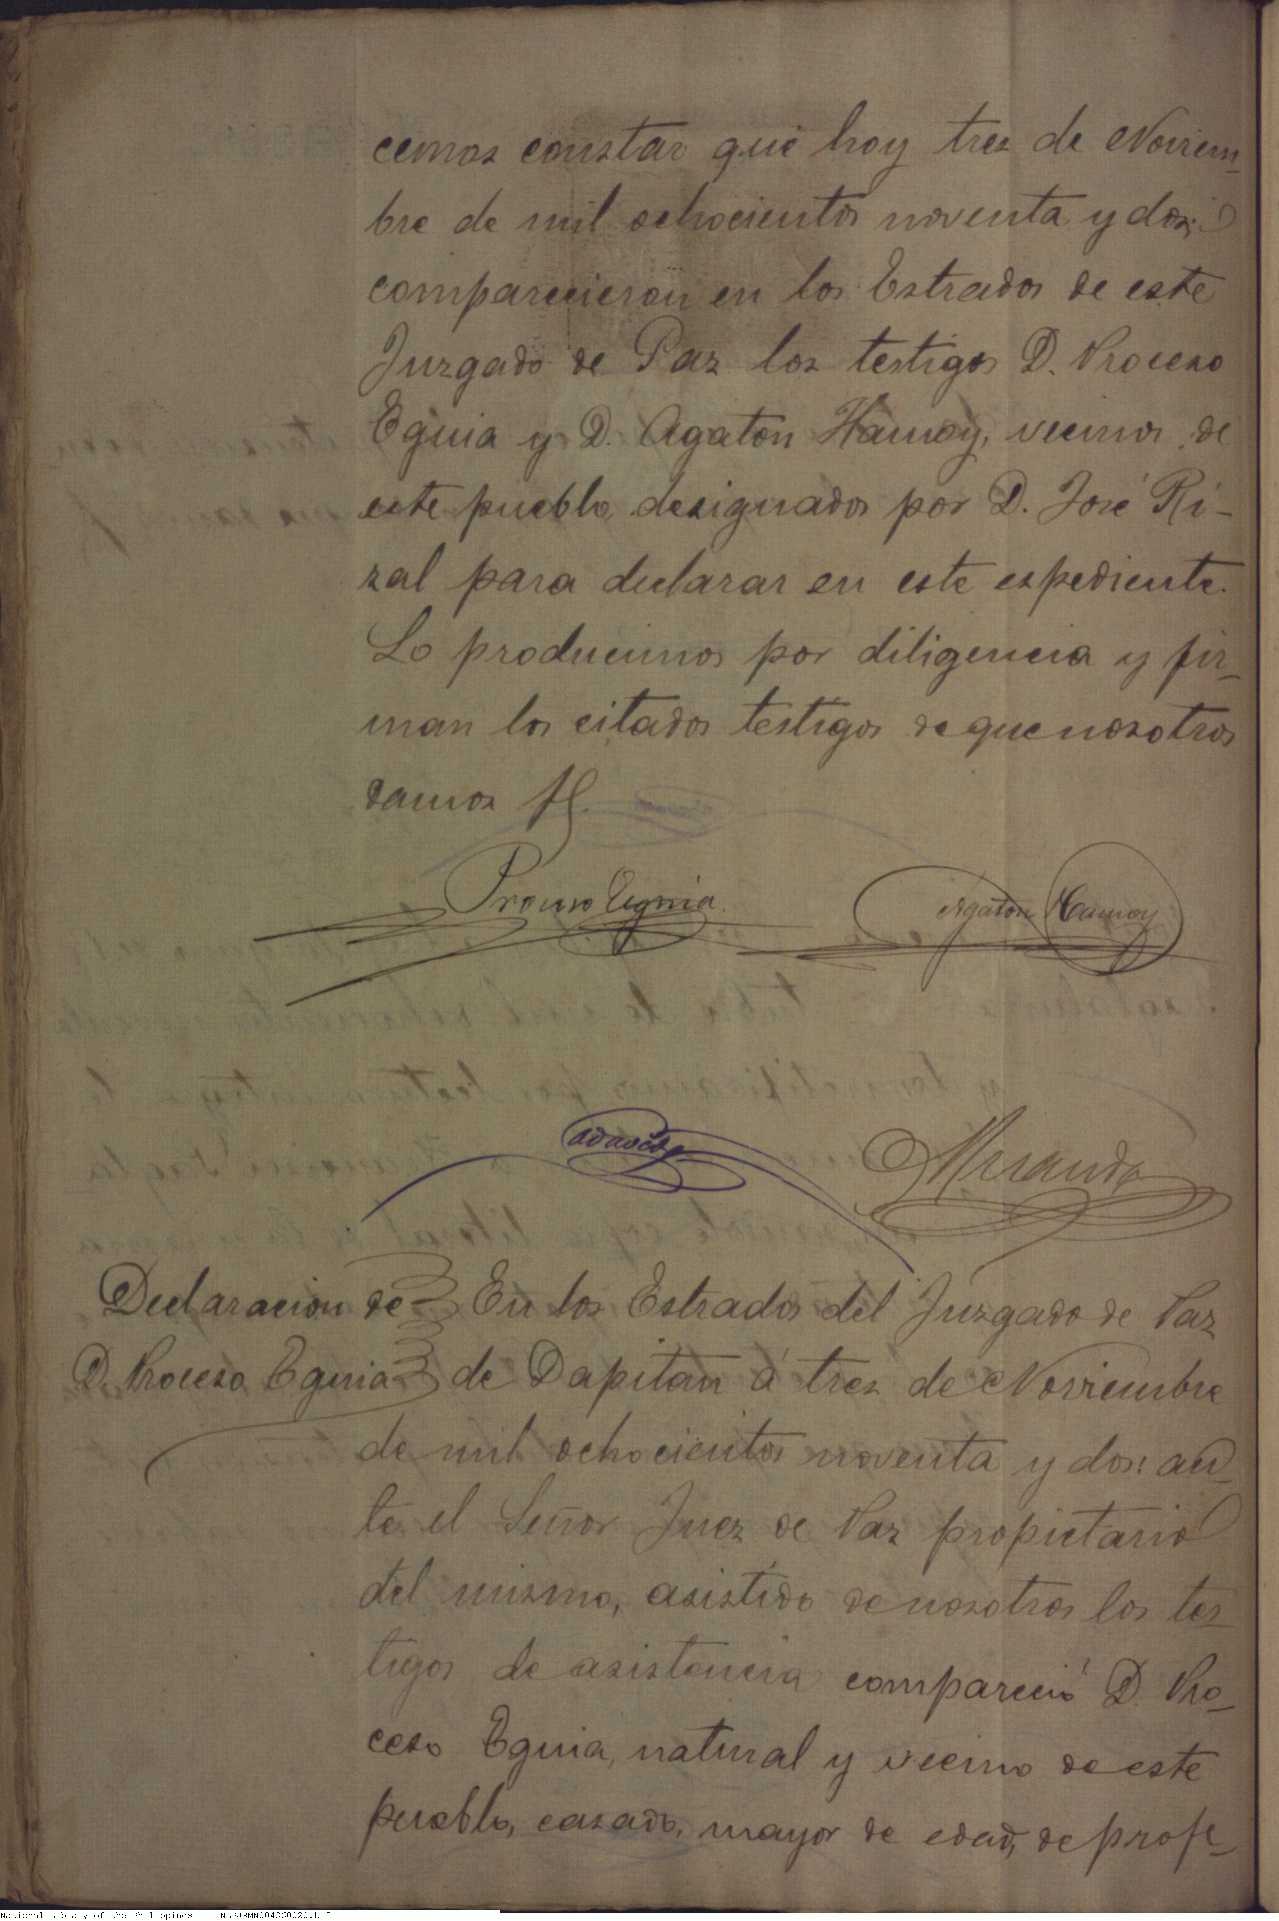 cemos constar que hoy tres de Noviem-
bre de mil ochocientos noventa y dos;
comparecieron en los Estrados de este
Juzgado de Paz los testigos D. Proceso
Eguia y D. Agaton Hamoy, vecinos de
este pueblo, designados por D. José Ri-
zal para declarar en este espediente.
Lo producimos por diligencia y fir-
man los citados testigos de que nosotros
damos fé.
Proceso Eguia
Agaton Hamoy
Miranda
Declaracion de
D. Proceso Eguia
En los Estrados del Juzgado de Paz
de Dapitan á tres de Noviembre
de mil ochocientos noventa y dos: an-
te el Señor Juez de Paz propietario
del mismo, asistido de nosotros los tes-
tigos de asistencia compareció D. Pro-
ceso Eguia, natural y vecino de este
pueblo, casado, mayor de edad, de profe-
National Library of the Philippines